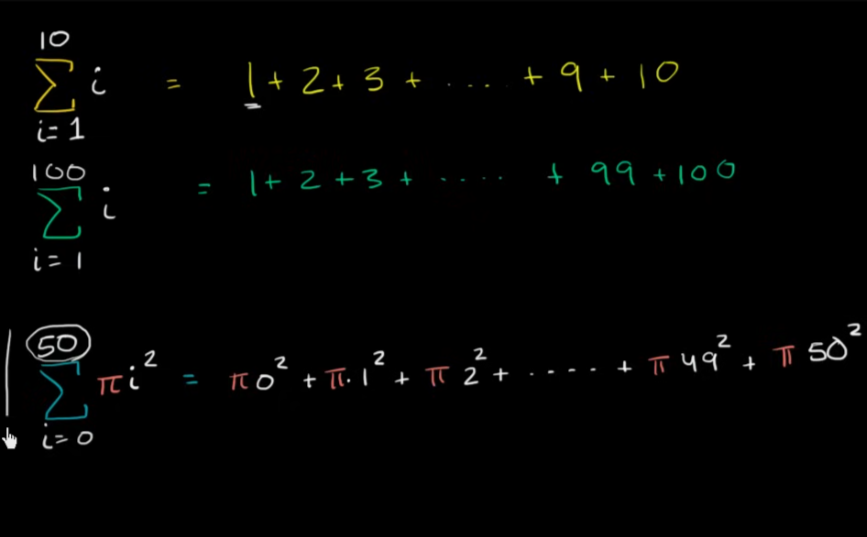 10
∑ i = 1 + 2 + 3 + .... + 9 + 10
i = 1
100
∑ i = 1 + 2 + 3 + ..... + 99 + 100
i = 1
50
∑ πi² = π0² + π·1² + π2² + ..... + π49² + π50²
i = 0